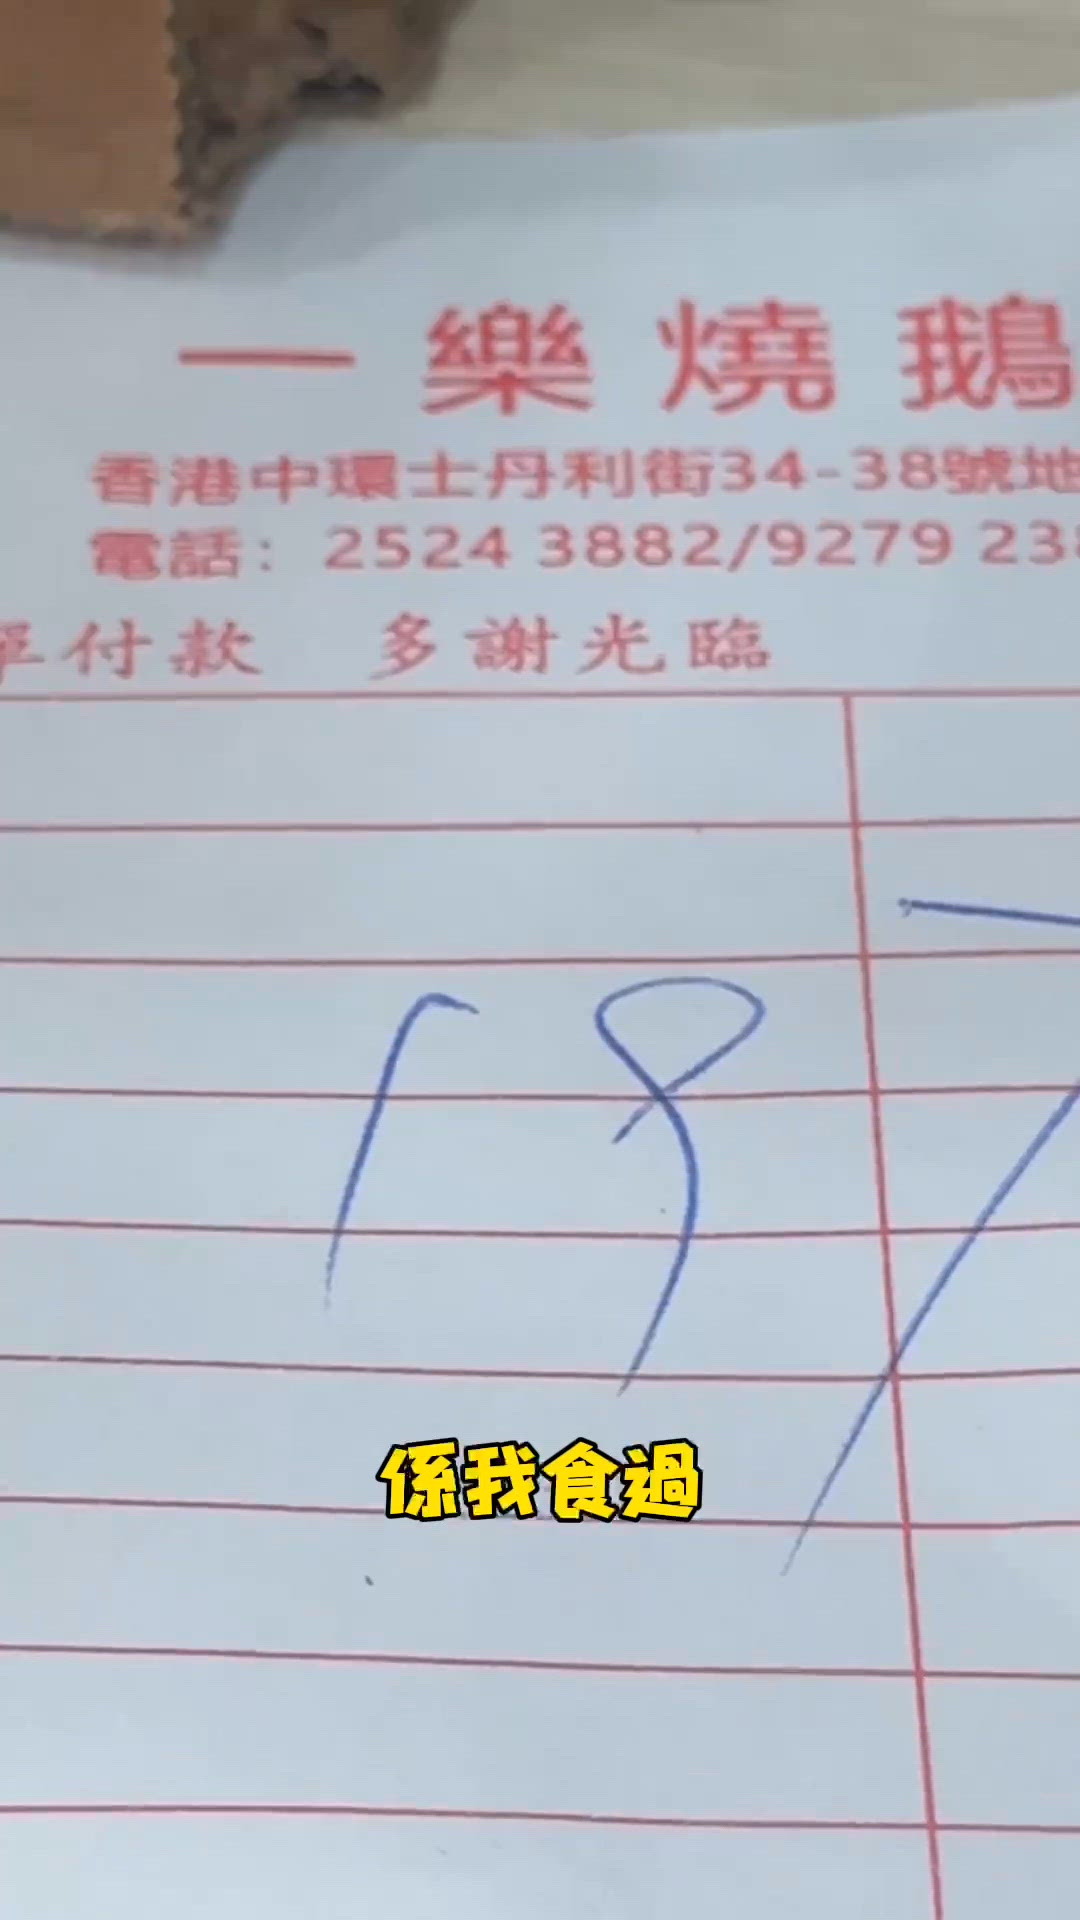 一樂燒鵝
香港中環士丹利街34-38號地
電話：2524 3882/9279 238
單付款 多謝光臨
係我食過